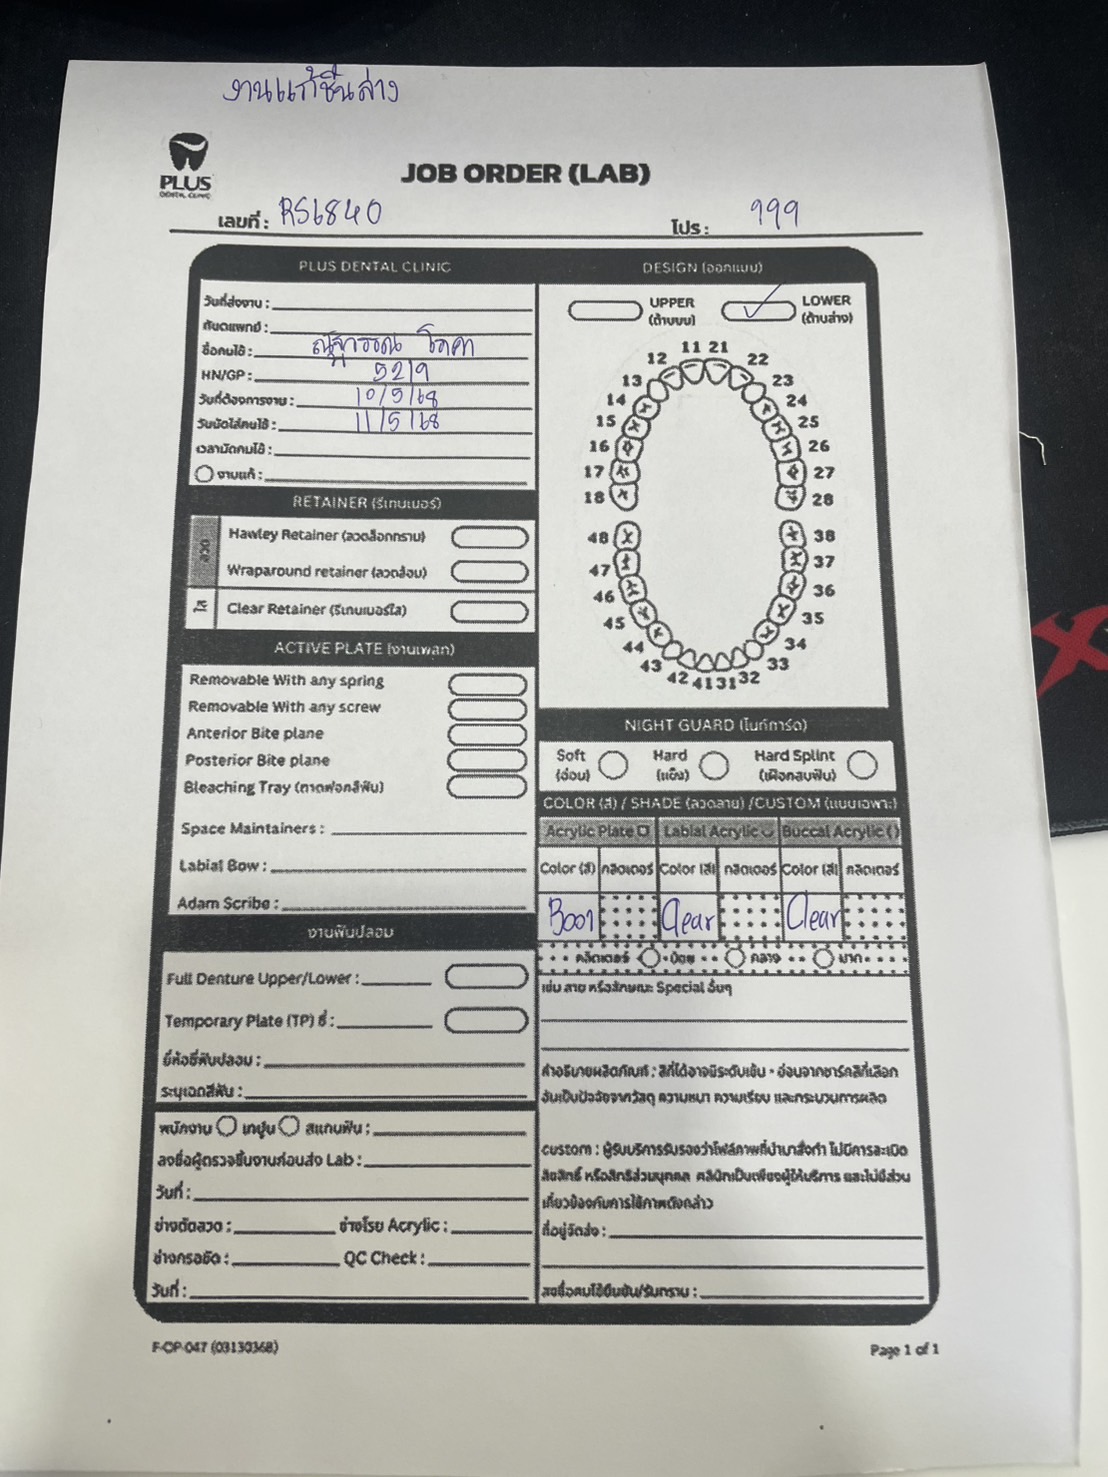 งานแก้ชิ้นล่าง
PLUS
DENTAL CLINIC
JOB ORDER (LAB)
เลขที่ : RS6840
โปร : 999
PLUS DENTAL CLINIC
วันที่ส่งงาน :
ทันตแพทย์ :
ชื่อคนไข้ :
HN/GP : 5219
วันที่ต้องการงาน : 10/5/68
วันนัดใส่คนไข้ : 11/5/68
เวลานัดคนไข้ :
งานแก้ :
RETAINER (รีเทนเนอร์)
ลวด
Hawley Retainer (ลวดล็อกกราม)
Wraparound retainer (ลวดล้อม)
ใส
Clear Retainer (รีเทนเนอร์ใส)
ACTIVE PLATE (งานเพลท)
Removable With any spring
Removable With any screw
Anterior Bite plane
Posterior Bite plane
Bleaching Tray (ถาดฟอกสีฟัน)
Space Maintainers :
Labial Bow :
Adam Scribe :
งานฟันปลอม
Full Denture Upper/Lower :
Temporary Plate (TP) ซี่ :
ยี่ห้อซี่ฟันปลอม :
ระบุเฉดสีฟัน :
พนักงาน เทปูน สแกนฟัน :
ลงชื่อผู้ตรวจชิ้นงานก่อนส่ง Lab :
วันที่ :
ช่างดัดลวด : ช่างโรย Acrylic :
ช่างกรอขัด : QC Check :
วันที่ :
DESIGN (ออกแบบ)
UPPER
(ด้านบน)
LOWER
(ด้านล่าง)
11 21
12 22
13 23
14 24
15 25
16 26
17 27
18 28
48 38
47 37
46 36
45 35
44 34
43 33
42 41 31 32
NIGHT GUARD (ไนท์การ์ด)
Soft
(อ่อน)
Hard
(แข็ง)
Hard Splint
(เฝือกสบฟัน)
COLOR (สี) / SHADE (ลวดลาย) /CUSTOM (แบบเฉพาะ)
Acrylic Plate Labial Acrylic Buccal Acrylic ()
Color (สี) กลิตเตอร์ Color (สี) กลิตเตอร์ Color (สี) กลิตเตอร์
B001 Clear Clear
กลิตเตอร์ น้อย กลาง มาก
เช่น ลาย หรือลักษณะ Special อื่นๆ
คำอธิบายผลิตภัณฑ์ : สีที่ได้อาจมีระดับเข้ม - อ่อนจากชาร์คสีที่เลือก
อันเป็นปัจจัยจากวัสดุ ความหนา ความเรียบ และกระบวนการผลิต
custom : ผู้รับบริการรับรองว่าไฟล์ภาพที่นำมาสั่งทำ ไม่มีการละเมิด
ลิขสิทธิ์ หรือสิทธิส่วนบุคคล คลินิกเป็นเพียงผู้ให้บริการ และไม่มีส่วน
เกี่ยวข้องกับการใช้ภาพดังกล่าว
ที่อยู่จัดส่ง :
ลงชื่อคนไข้ยืนยัน/รับทราบ :
F-OP-047 (03130368)
Page 1 of 1